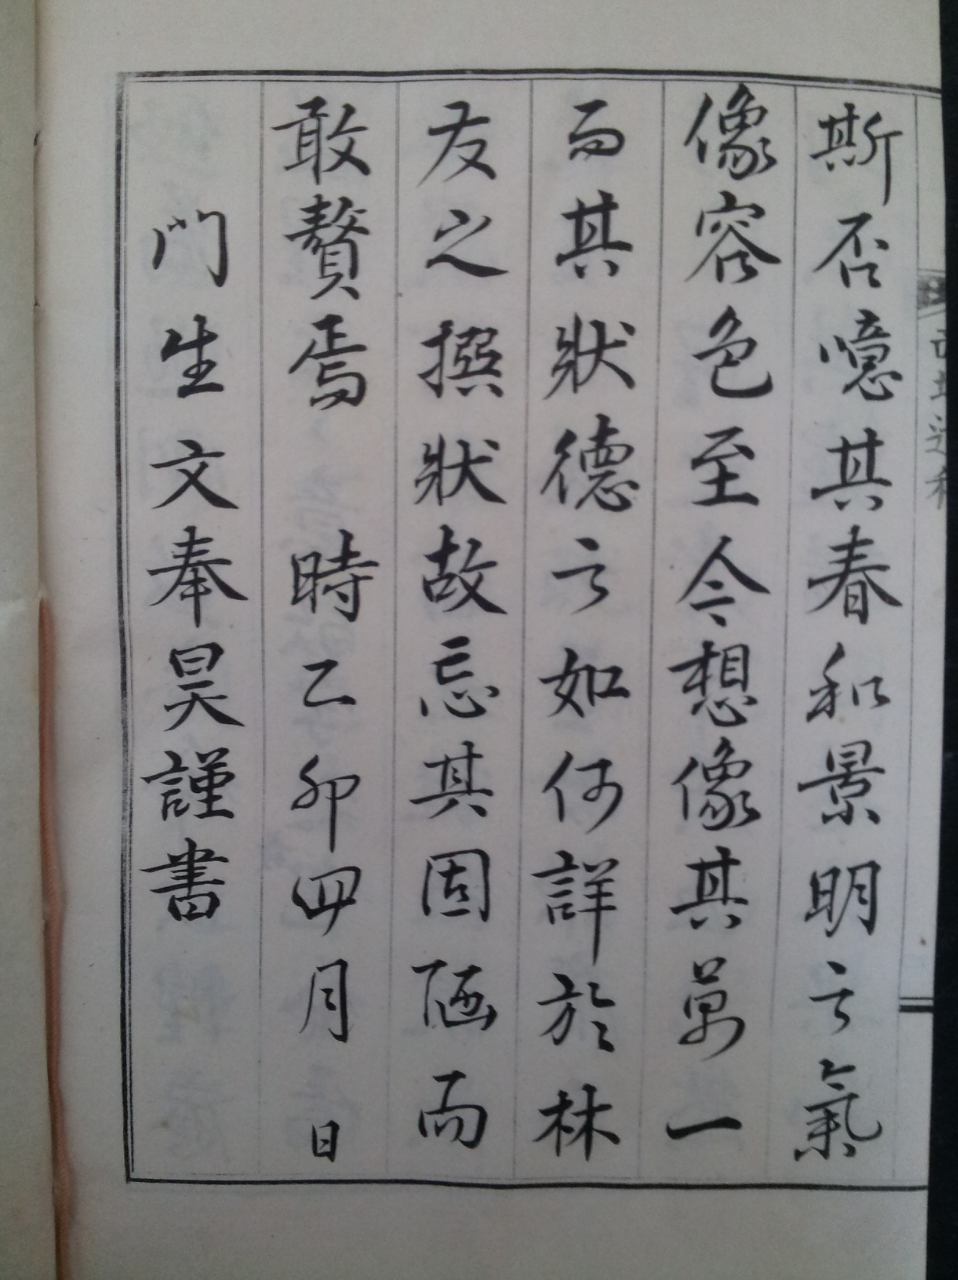 斯否噫其春和景明之氣
像容色至今想像其萬一
而其狀德之如何詳於林
友之撰狀故忘其固陋而
敢贅焉 時乙卯四月 日
門生文奉昊謹書